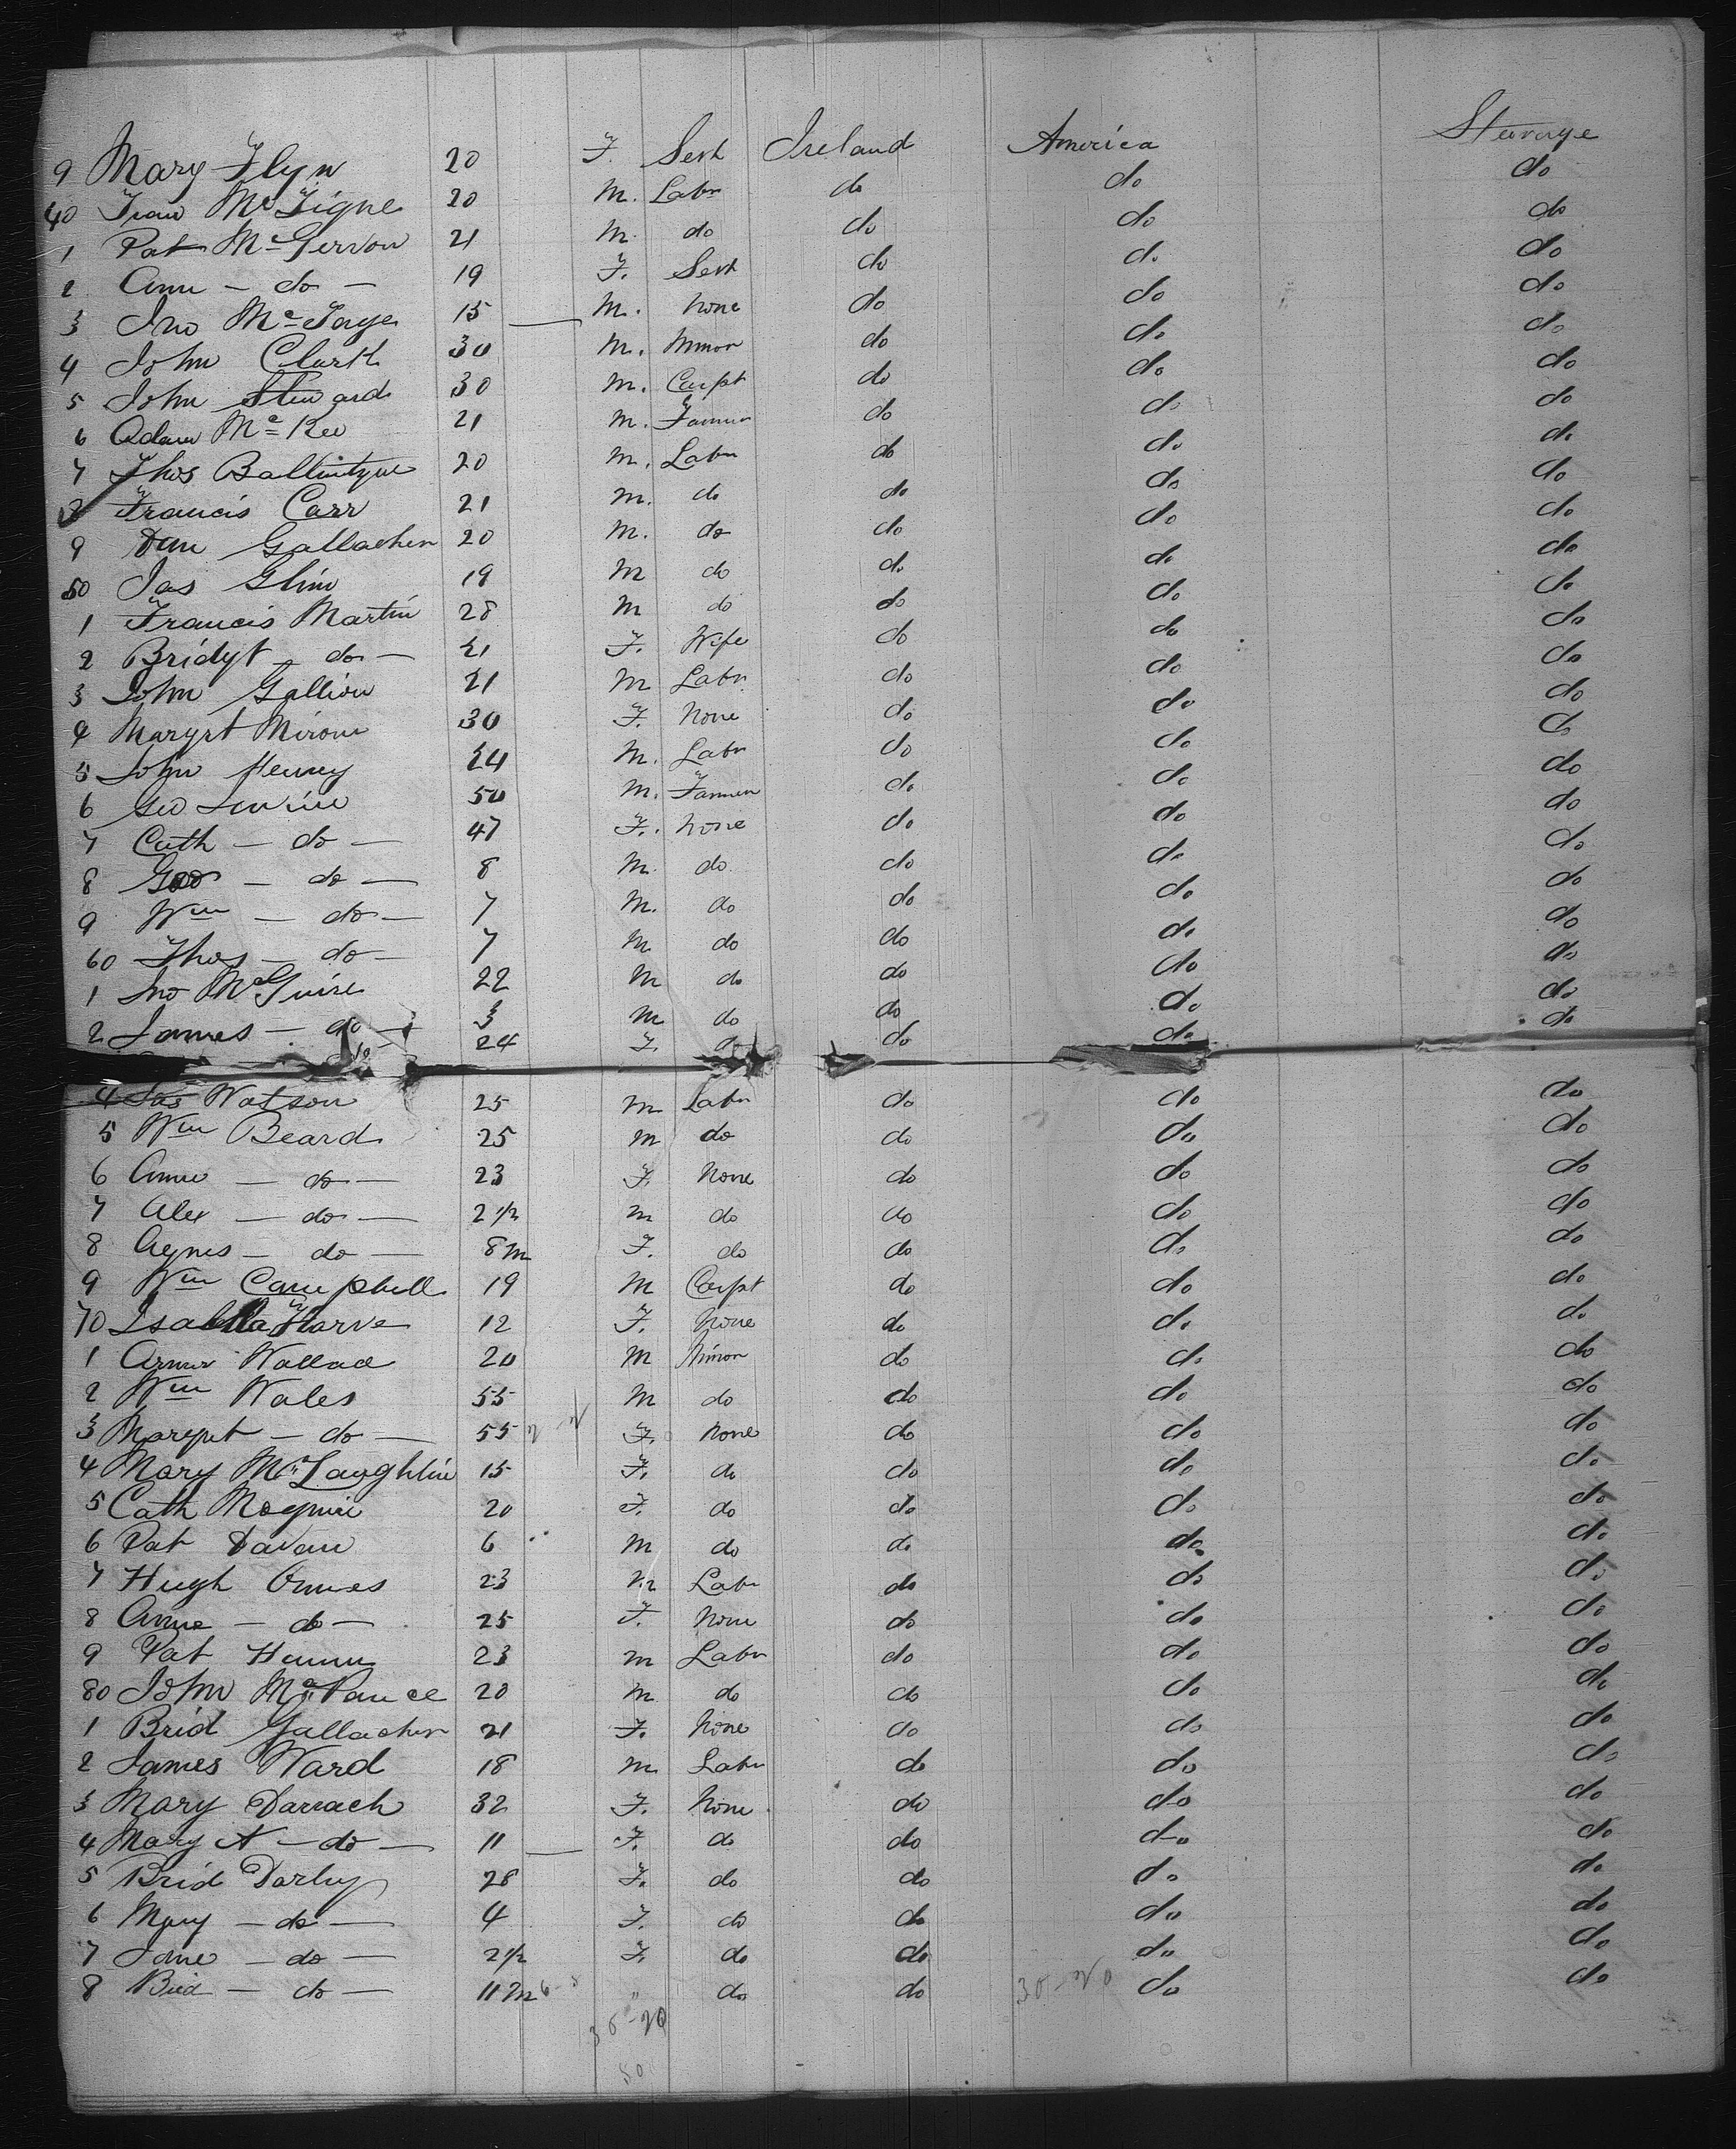 9 Mary Flyn 20 F. Servt Ireland America Steerage
40 Fran McTigne 20 M. Labr do do do
1 Pat Mc 21 M. do do do do
2 Ann - do - 19 F. Servt do do do
3 Jno Mc 15 M. None do do do
4 John Clark 30 M. Minor do do do
5 John Steward 30 M. Carpt do do do
6 Adam McKee 21 M. Farmer do do do
7 Thos Ballintyne 20 M. Labr do do do
8 Francis Carr 21 M. do do do do
9 Dan Gallacher 20 M. do do do do
50 Jas Glinn 19 M do do do do
1 Francis Martin 28 M do do do do
2 Bridgt - do - 21 F. Wife do do do
3 John Gallion 21 M Labr do do do
4 Margrt 30 F. None do do do
5 John Henney 24 M. Labr do do do
6 Geo 50 M. Farmer do do do
7 Cath - do - 47 F. None do do do
8 Geo - do - 8 M. do do do do
9 Wm - do - 7 M. do do do do
60 Thos - do - 7 M do do do do
1 Jno McGuire 22 M do do do do
2 James - do - 3 M do do do do
24 F. do do do do
4 Jas Watson 25 M Labr do do do
5 Wm Beard 25 M do do do do
6 Anne - do - 23 F. None do do do
7 Alex - do - 2 1/2 M do do do do
8 Agnes - do - 8m F. do do do do
9 Wm Campbell 19 M Carpt do do do
70 Isabella Harve 12 F. None do do do
1 Armr Wallace 20 M Minor do do do
2 Wm Wales 55 M do do do do
3 Margret - do - 55 F. None do do do
4 Mary McLaughlin 15 F. do do do do
5 Cath Magnire 20 F. do do do do
6 Pat Davan 6 M do do do do
7 Hugh 23 M Labr do do do
8 Anne - do - 25 F. None do do do
9 Pat 23 M Labr do do do
80 John Mc 20 M do do do do
1 Brid Gallacher 21 F. None do do do
2 James Ward 18 M Labr do do do
3 Mary Darrach 32 F. None do do do
4 Mary A - do - 11 F. do do do do
5 Brid Darby 28 F. do do do do
6 Mary - do - 4 F. do do do do
7 Jane - do - 2 1/2 F. do do do do
8 Brid - do - 11m " do do do do